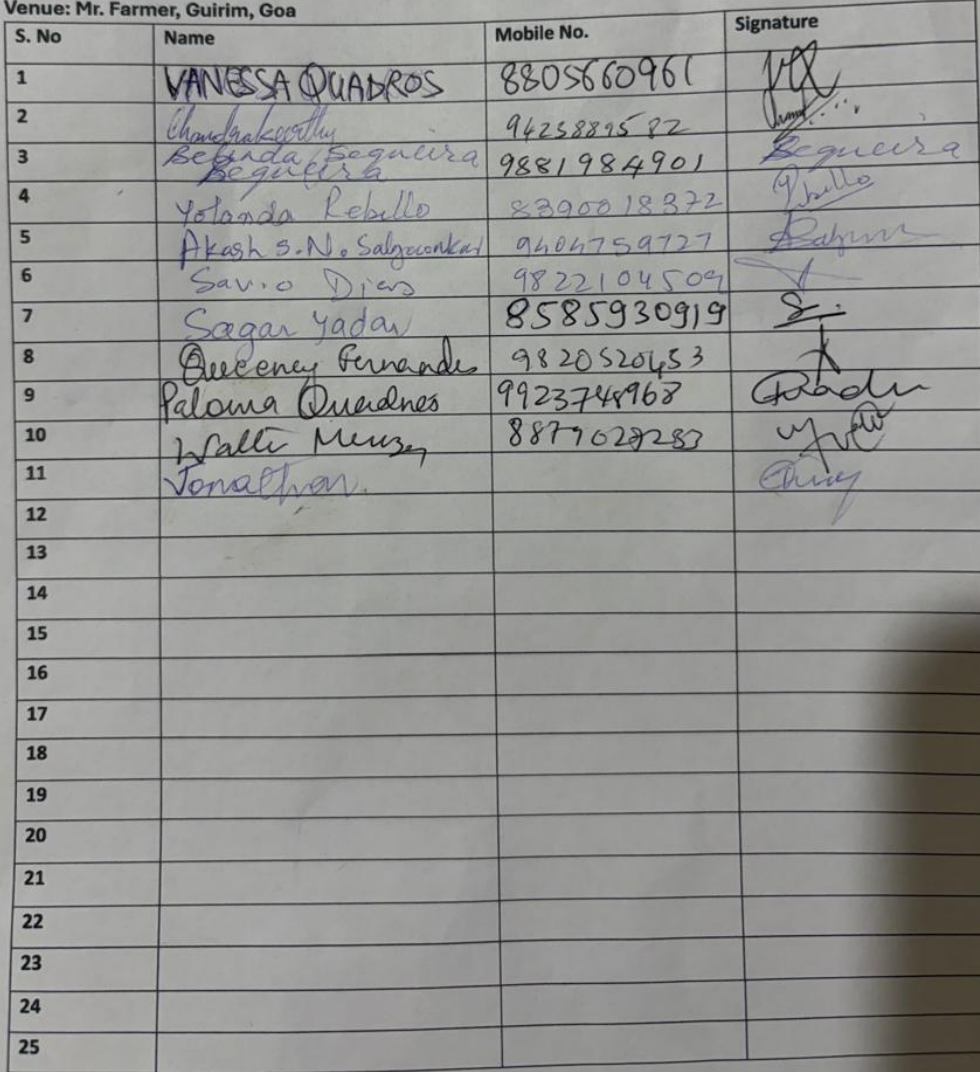 Venue: Mr. Farmer, Guirim, Goa
S. No Name Mobile No. Signature
1 VANESSA QUADROS 8805660961
2 9423889582
3 Belinda Sequeira 9881984901 Sequeira
Sequeira
4 Yolanda Rebello 8390018372 Rebello
5 Akash S.N. Salgaonkar 9404759727
6 Savio Dias 9822104509
7 Sagar Yadav 8585930919
8 Queeney Fernandes 9820520453
9 Paloma Quadros 9923748968
10
11 Jonathan.
12
13
14
15
16
17
18
19
20
21
22
23
24
25